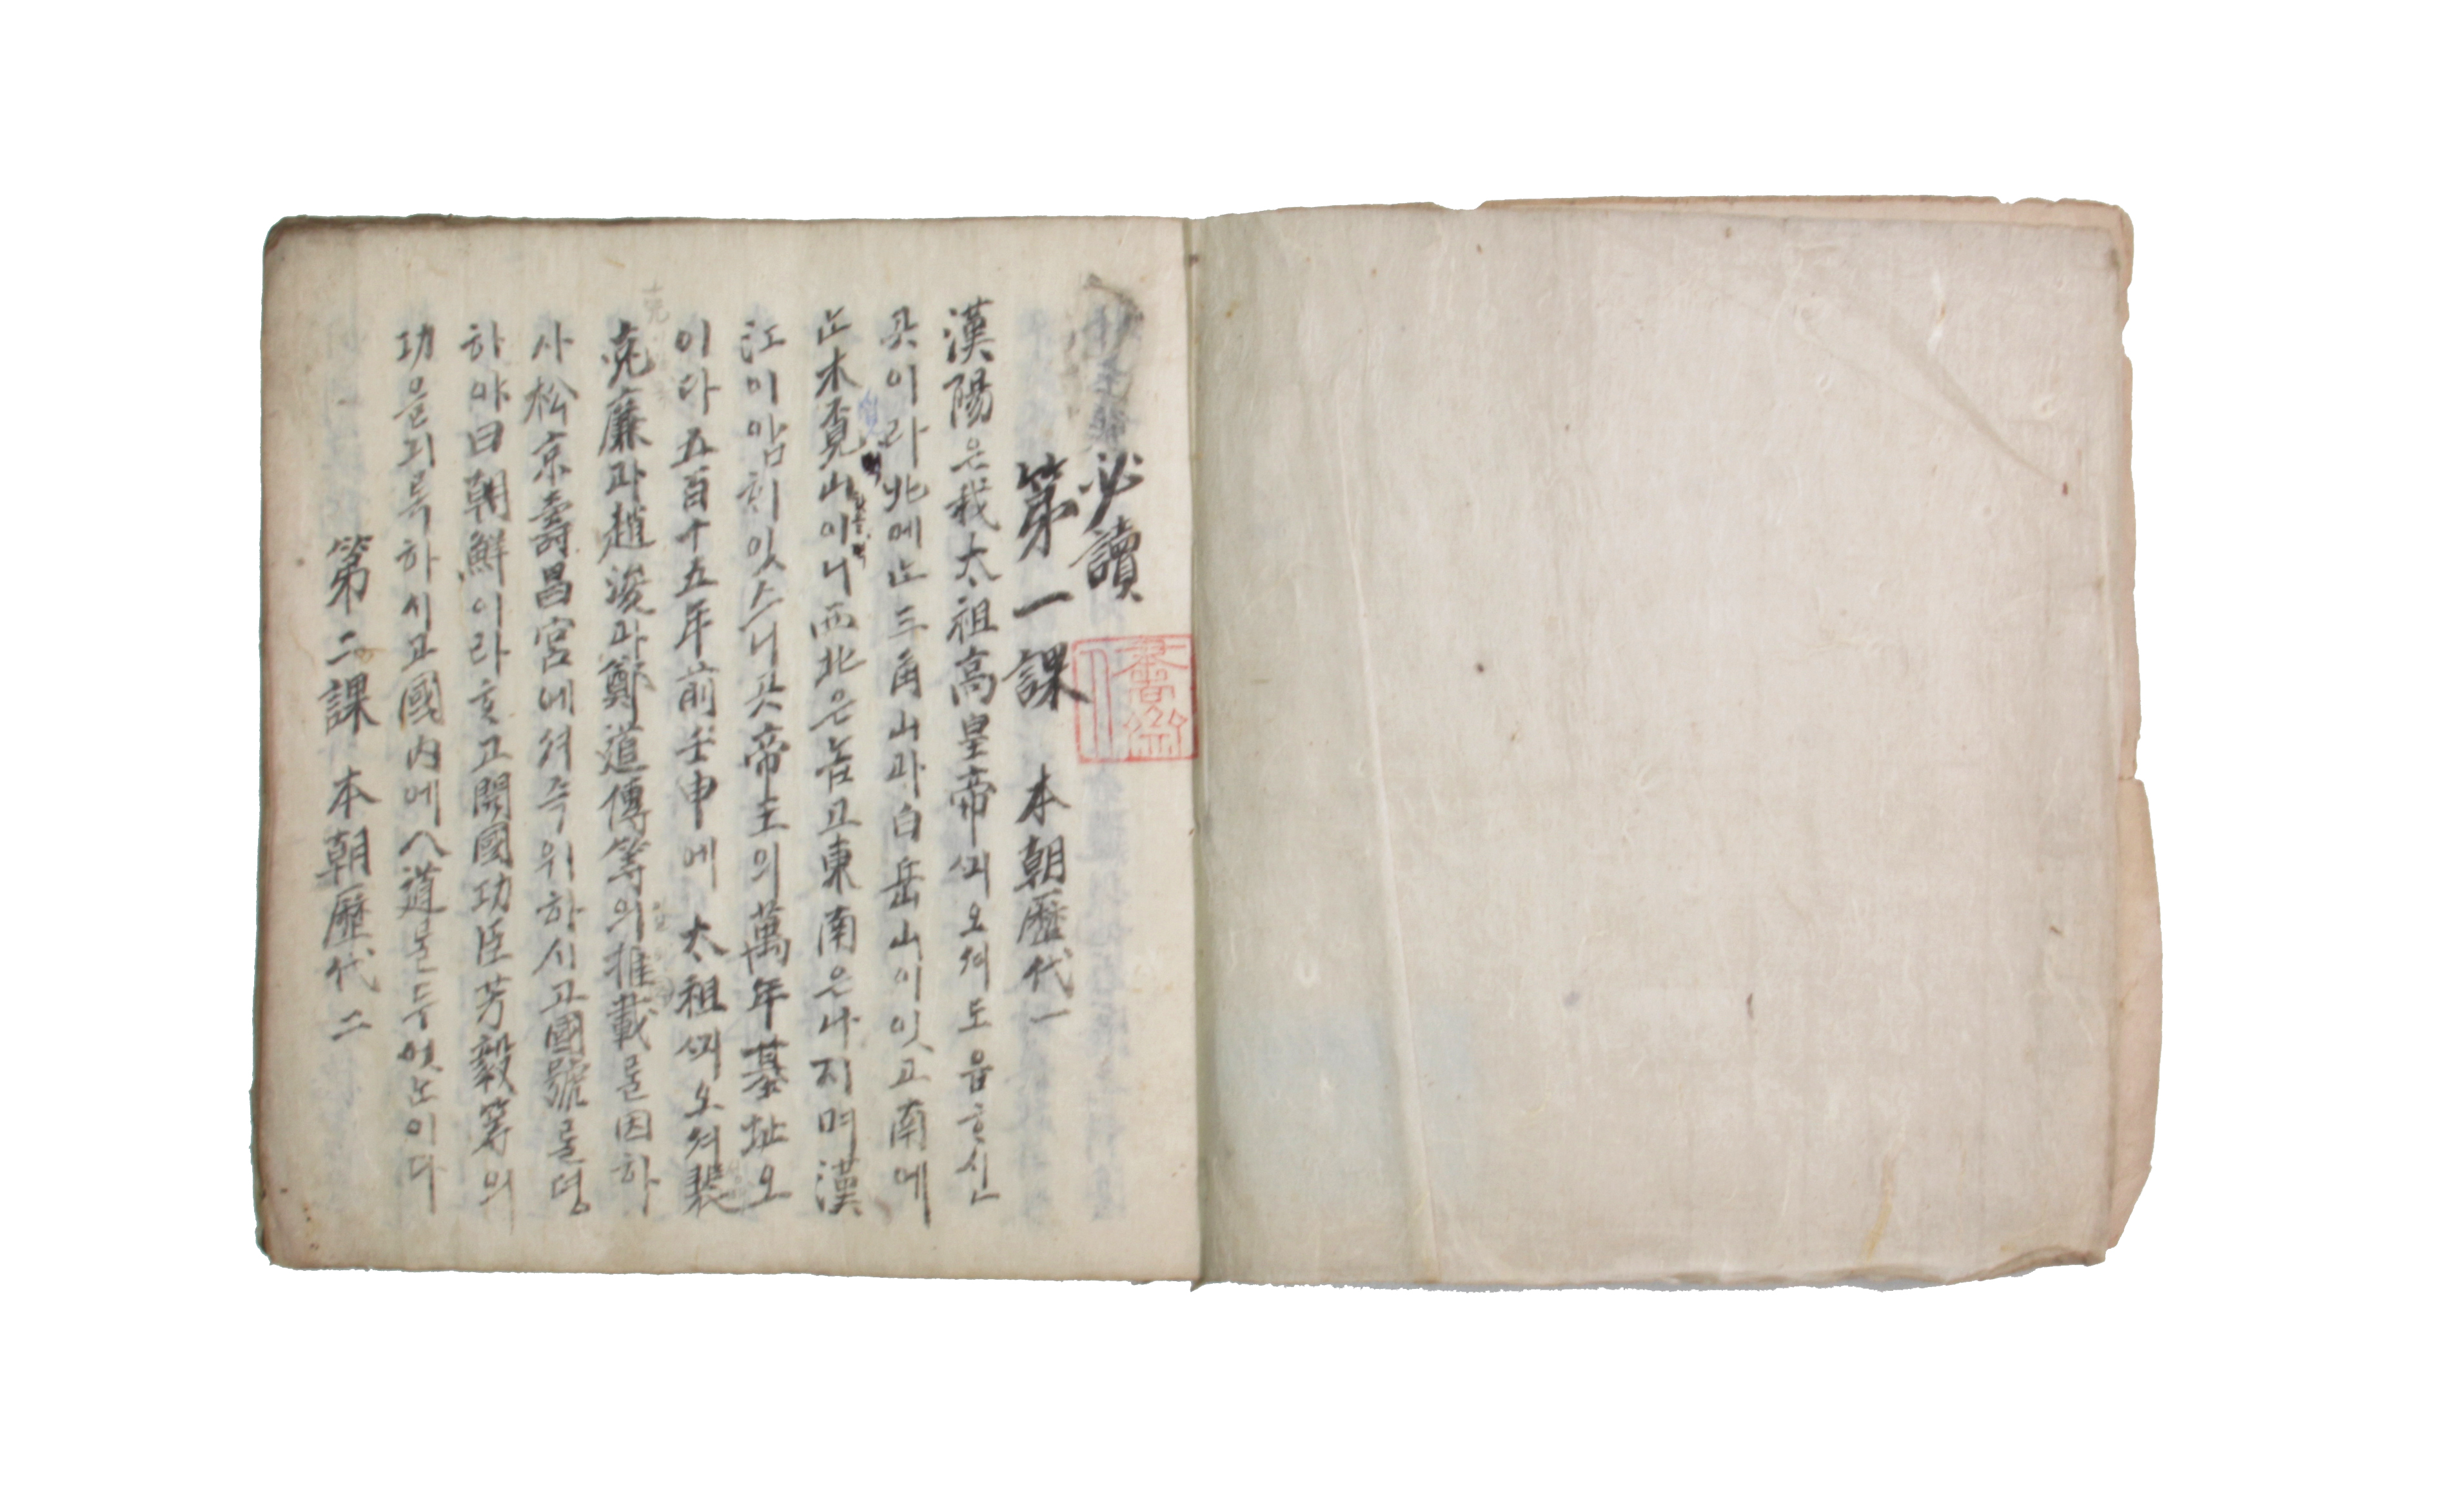 必讀
第一課 本朝歷代一
漢陽은我太祖高皇帝ᄭᅴ오셔도읍ᄒᆞ신
곳이라北에ᄂᆞᆫ三角山과白岳山이잇고南에
ᄂᆞᆫ木覓山이니西北은놉고東南은나지며漢
江이암희잇스니곳帝王의萬年基址오
이다五百十五年前壬申에 太祖ᄭᅴ오셔裴
克廉과趙浚과鄭道傳等의推戴ᄅᆞᆯ因하
사松京壽昌宮에셔즉위하시고國號ᄅᆞᆯ뎡
하야曰朝鮮이라ᄒᆞ고開國功臣芳毅等의
功을긔록하시고國內에八道ᄅᆞᆯ두엇ᄂᆞ이다
第二課 本朝歷代二